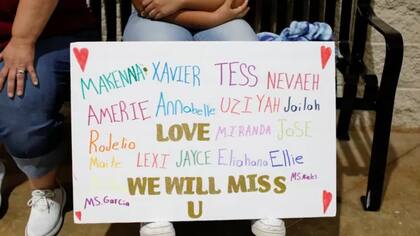 MAKENNA XAVIER TESS NEVAEH
AMERIE Annabelle UZIYAH Jailah
Rodelio LOVE MIRANDA JOSE
Maite LEXI JAYCE Eliahana Ellie
WE WILL MISS
MS. Garcia U